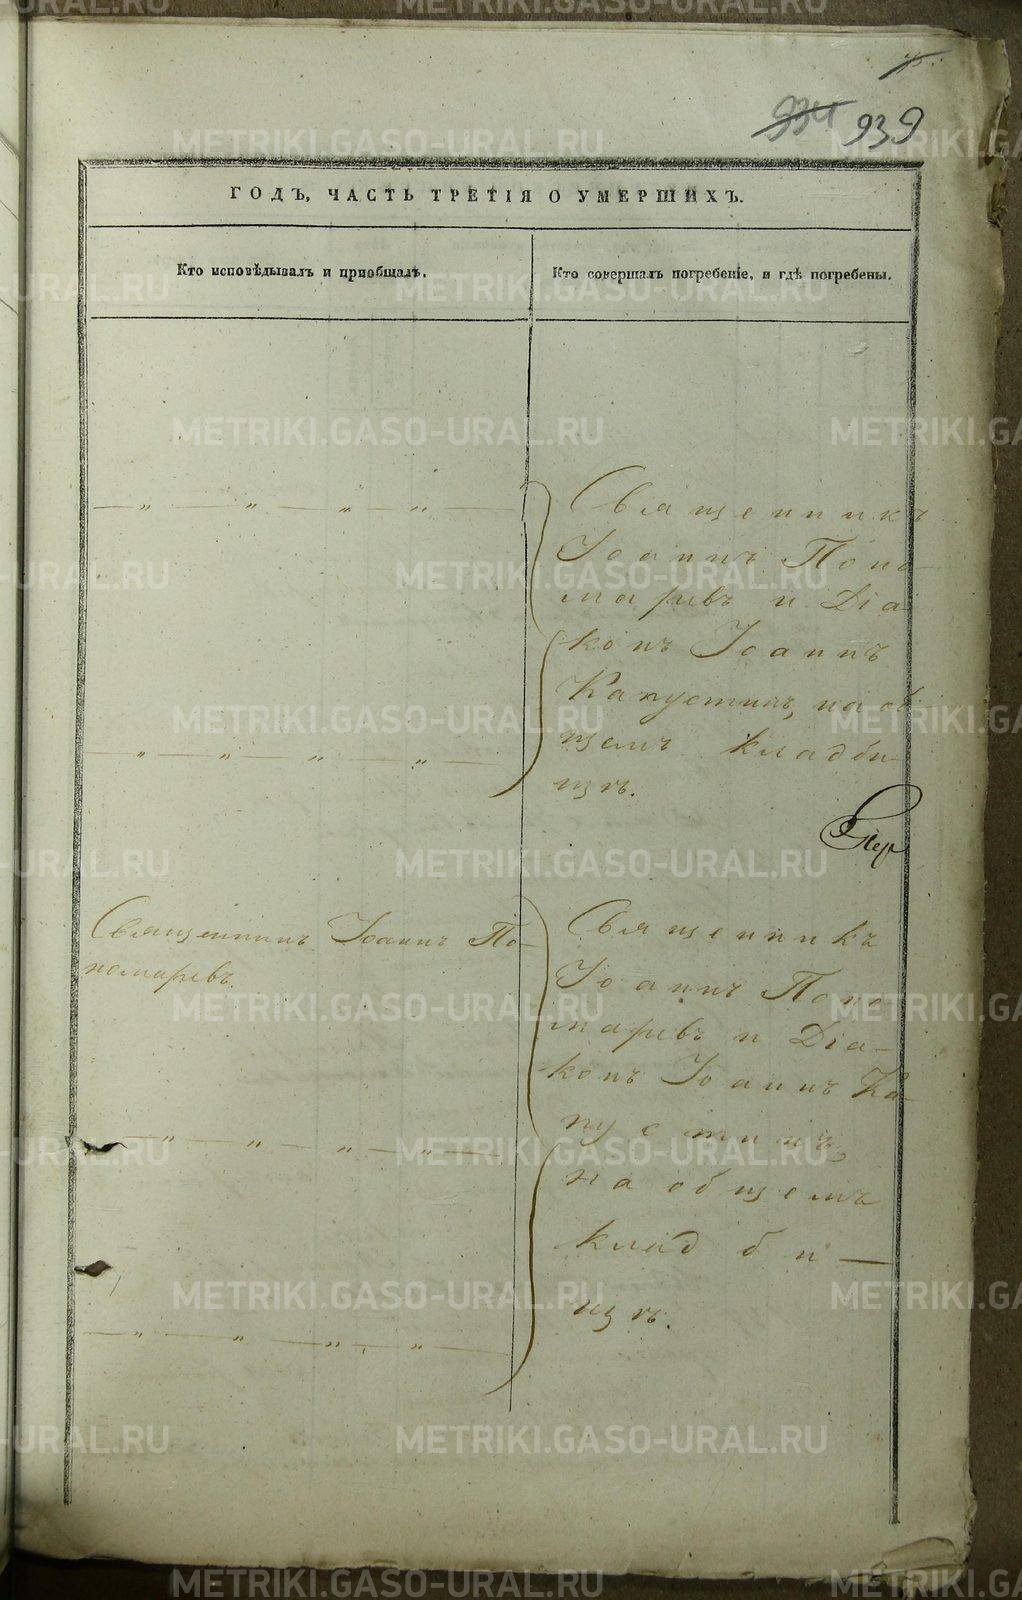 934 939
ГОДЪ, ЧАСТЬ ТРЕТІЯ О УМЕРШИХЪ.
Кто исповѣдывалъ и пріобщалъ.
Кто совершалъ погребеніе, и гдѣ погребены.
— „ — „ — „ — „ —
Священникъ
Іоаннъ Поно-
маревъ и Діа
конъ Іоаннъ
Капустинъ, на об
щемъ кладби-
щѣ.
— „ — „ — „ — „ —
Священникъ Іоаннъ По-
номаревъ.
Священникъ
Іоаннъ Поно
маревъ и Діа-
конъ Іоаннъ Ка-
пустинъ,
на общемъ
кладби—
щѣ.
— „ — „ — „ — „ —
— „ — „ — „ — „ —
METRIKI.GASO-URAL.RU